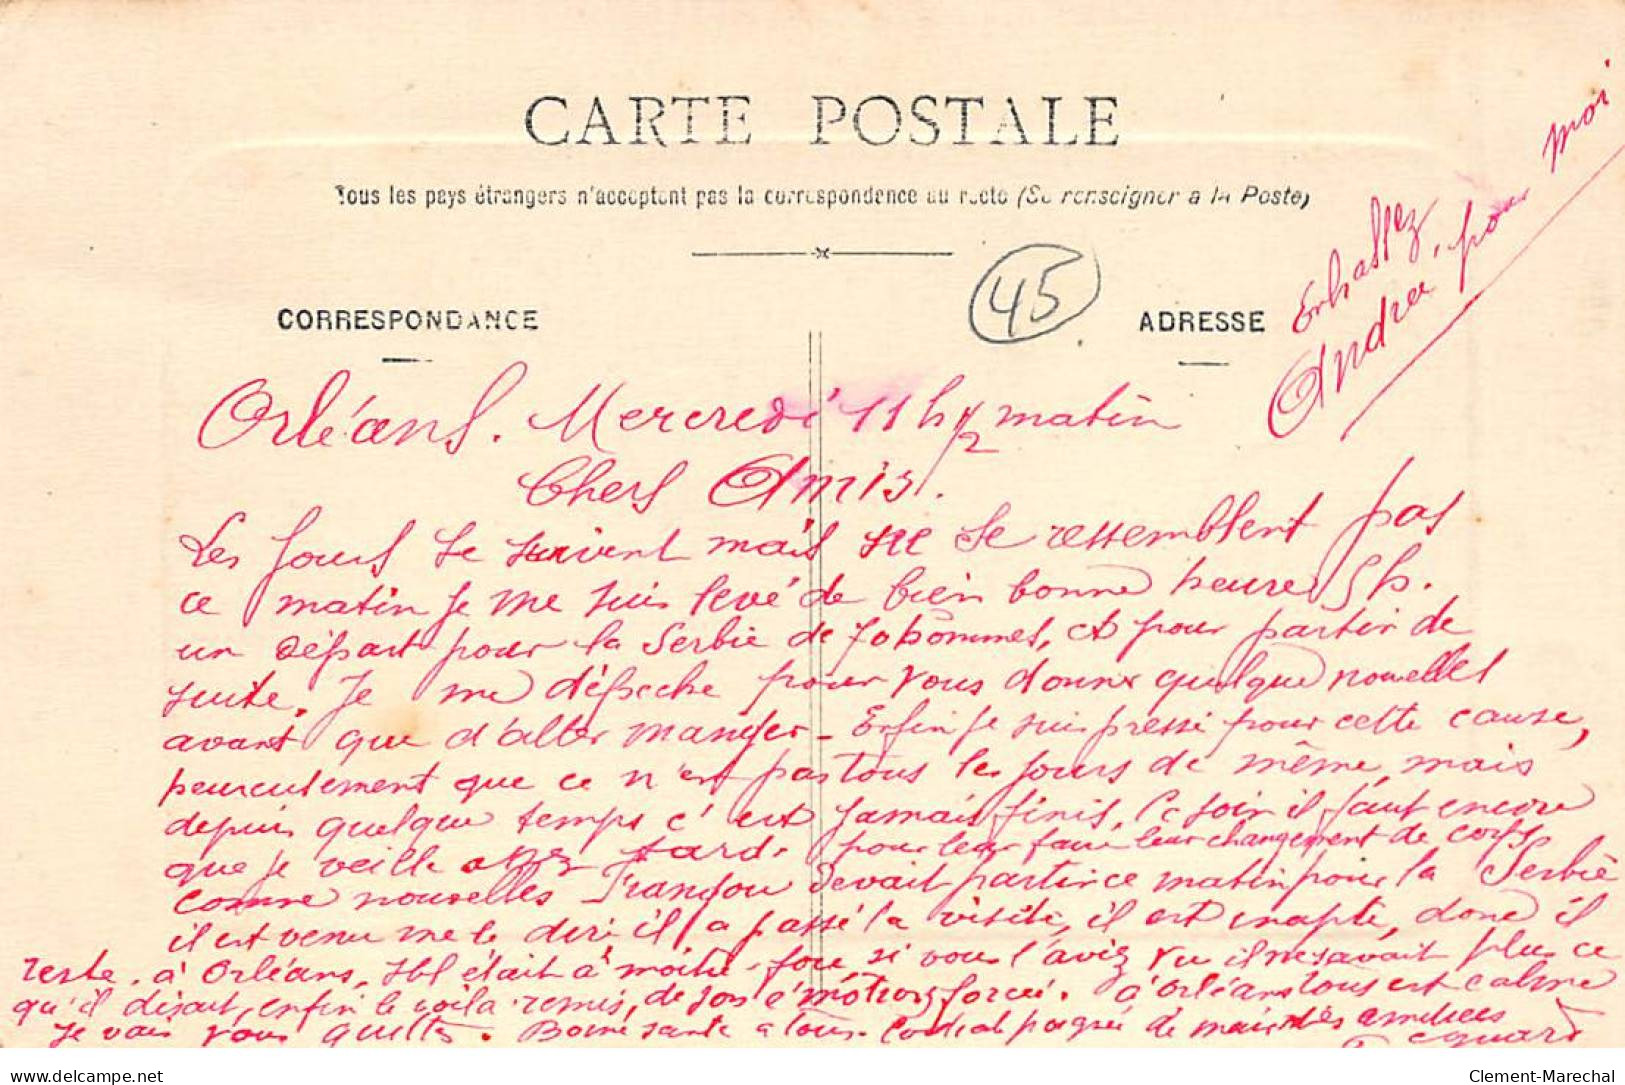 CARTE POSTALE
Tous les pays étrangers n'acceptent pas la correspondance au recto (Se renseigner a la Poste)
45
CORRESPONDANCE
ADRESSE
Enbassez
Andrée, pour moi
Orléans. Mercredi 11h 1/2 matin
Chers Amis.
Les Jours se suivent mais ne se ressemblent pas
ce matin je me suis levé de bien bonne heure 5h.
un départ pour la Serbie de 70 hommes, et pour partir de
suite. Je me dépêche pour vous donner quelque nouvelles
avant que d'aller manger - Enfin je suis pressé pour cette cause,
heureusement que ce n'est pas tous les jours de même, mais
depuis quelque temps c'est jamais finis. Ce soir il faut encore
que je veille assez tard. pour leur faire leur changement de corps
comme nouvelles devait partir ce matin pour la Serbie
il est venu me le dire il a passé la visite, il est inapte, donc il
reste à Orléans, il était à moitié fou si vous l'aviez vu il ne savait plus ce
qu'il disait, enfin le voila remis, de son émotion forcée. à Orléans tous est calme
Je vais vous quitter. Bonne sante a tous. Cordial poignée de main des amis
delcampe.net
Clement-Marechal